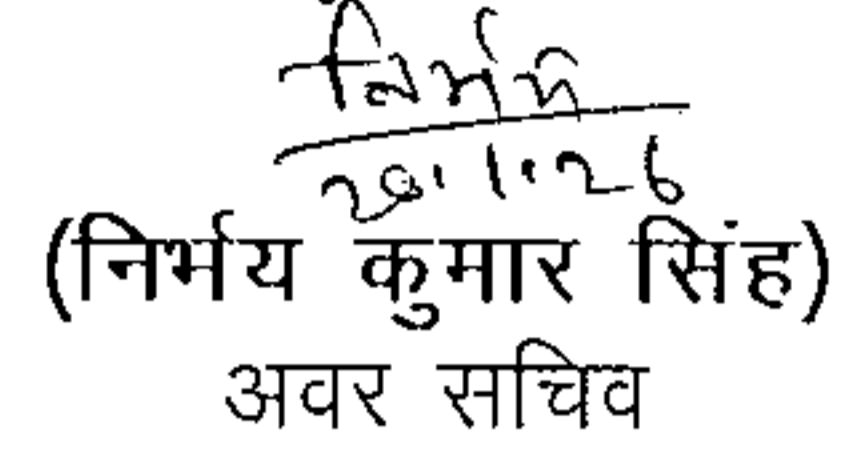 निर्भय
20.1.26
(निर्भय कुमार सिंह)
अवर सचिव